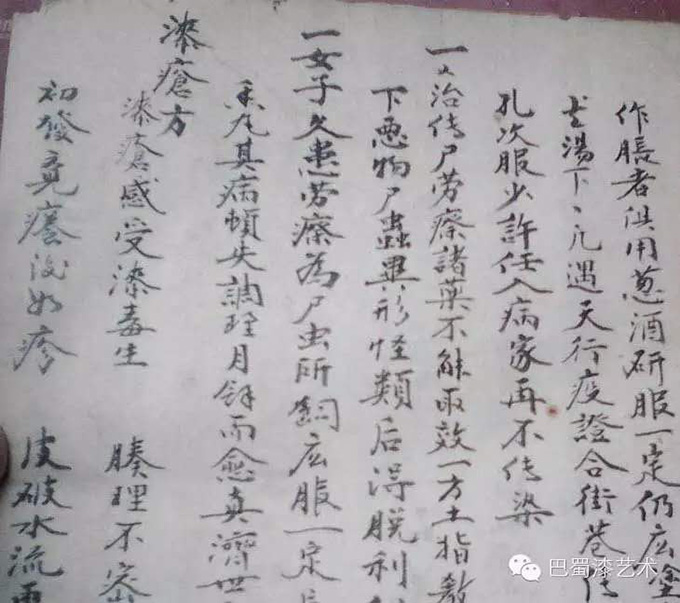 作脹者俱用葱酒研服一定仍広塗
湯下丶凢遇天行疫證合街巷
孔次服少許任入病家再不传染
一又治传尸劳瘵諸薬不能取效一方土指教
下悪物尸蟲異形怪類后得脱利
一女子久患劳瘵為尸虫所広服一定
其病頓失調理月餘而愈真濟世
漆瘡方
漆瘡感受漆毒生 腠理不密
初發竟癢后如疹 皮破水流更
巴蜀漆艺术